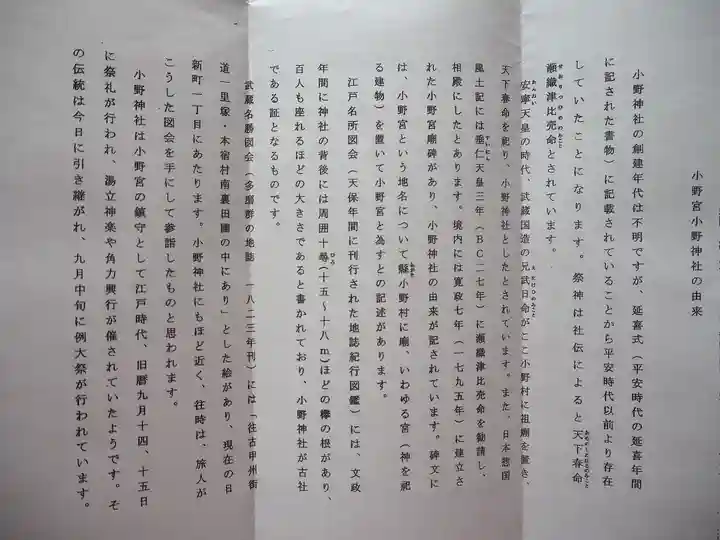 小野宮小野神社の由来
小野神社の創建年代は不明ですが、延喜式（平安時代の延喜年間
に記された書物）に記載されていることから平安時代以前より存在
していたことになります。祭神は社伝によると天下春命
瀬織津比売命とされています。
安寧天皇の時代、武蔵国造の兄武日命がここ小野村に祖廟を置き、
天下春命を祀り、小野神社としたとされています。また、日本惣国
風土記には垂仁天皇三年（BC二七年）に瀬織津比売命を勧請し、
相殿にしたとあります。境内には寛政七年（一七九五年）に建立さ
れた小野宮廟碑があり、小野神社の由来が記されています。碑文に
は、小野宮という地名について縣小野村に廟、いわゆる宮（神を祀
る建物）を置いて小野宮と為すとの記述があります。
江戸名所図会（天保年間に刊行された地誌紀行図鑑）には、文政
年間に神社の背後には周囲十尋（十五～十八m）ほどの欅の根があり、
百人も座れるほどの大きさであると書かれており、小野神社が古社
である証となるものです。
武蔵名勝図会（多磨群の地誌 一八二三年刊）には「往古甲州街
道一里塚・本宿村南裏田圃の中にあり」とした絵があり、現在の日
新町一丁目にあたります。小野神社にもほど近く、往時は、旅人が
こうした図会を手にして参詣したものと思われます。
小野神社は小野宮の鎮守として江戸時代、旧暦九月十四、十五日
に祭礼が行われ、湯立神楽や角力興行が催されていたようです。そ
の伝統は今日に引き継がれ、九月中旬に例大祭が行われています。